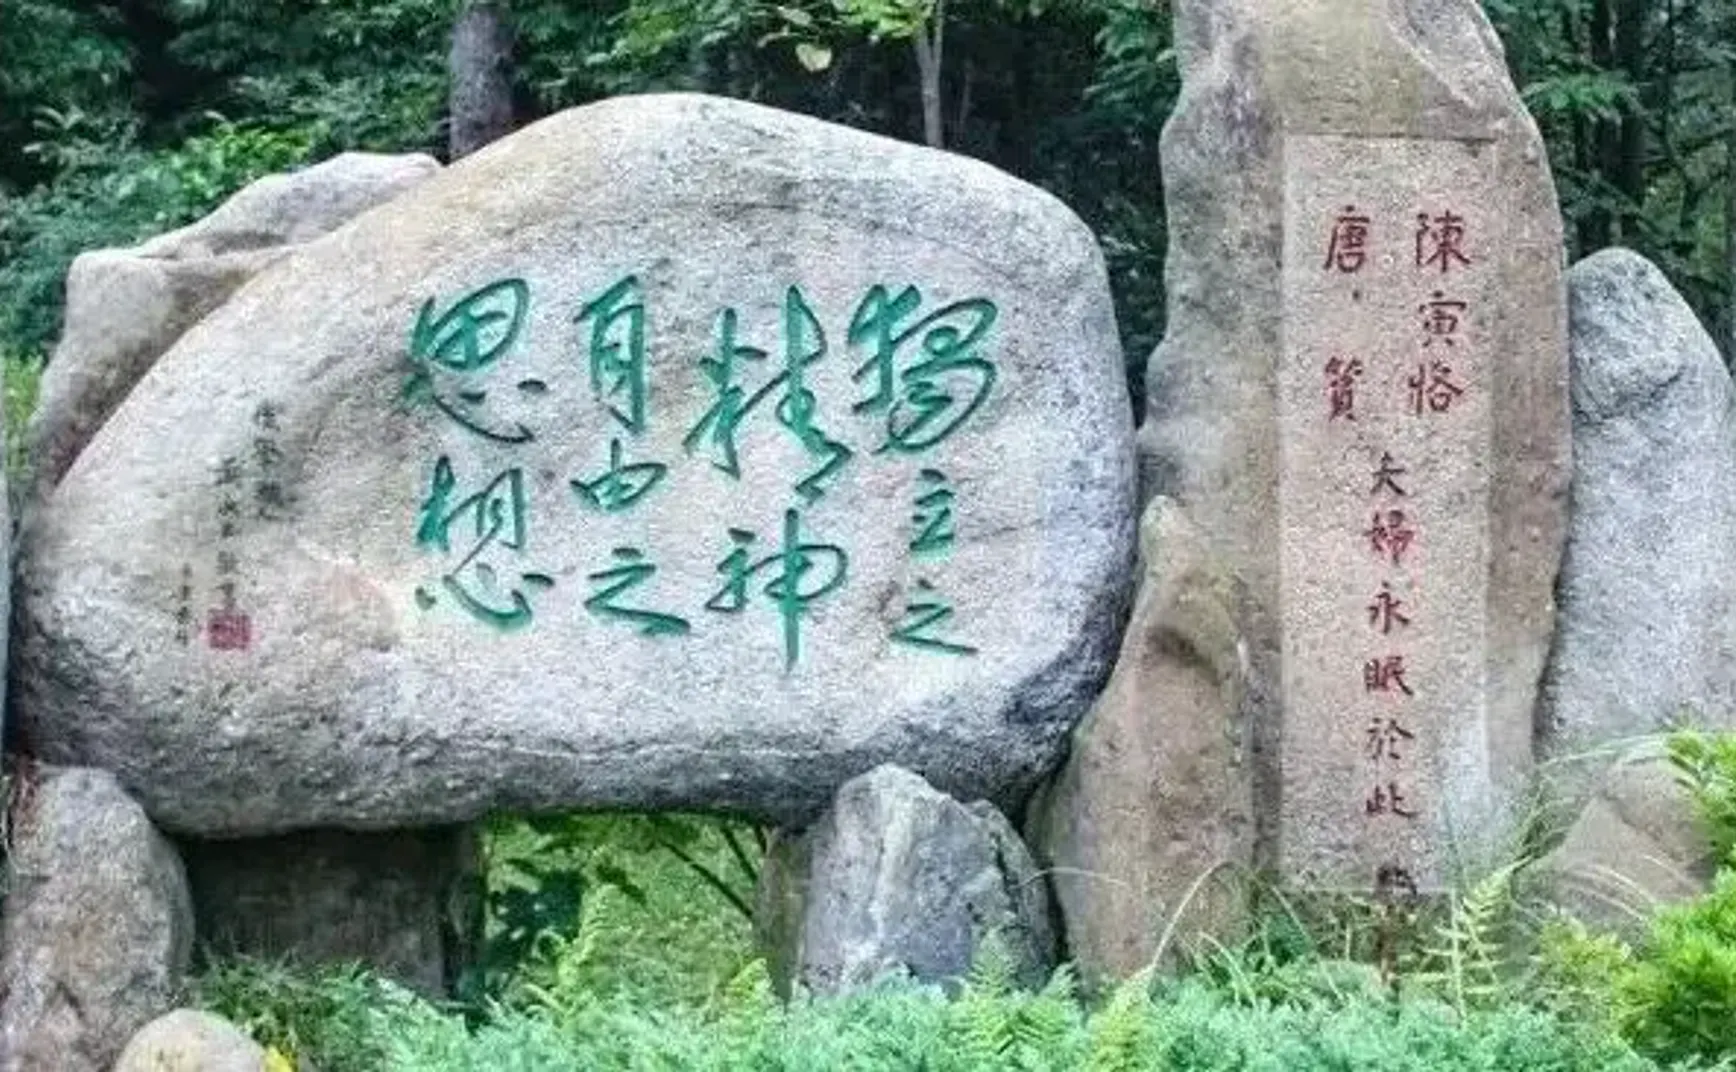 獨立之
精神
自由之
思想
陳寅恪
唐篔
夫婦永眠於此